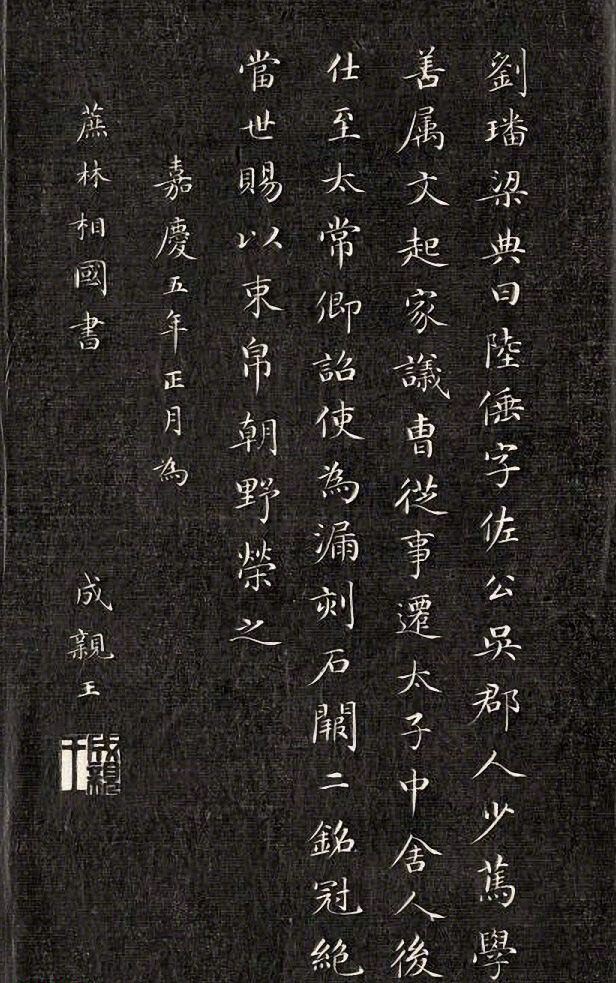 劉璠梁典曰陸倕字佐公吳郡人少篤學
善属文起家議曺從事遷太子中舍人後
仕至太常卿詔使為漏刻石闕二銘冠絶
當世賜以束帛朝野榮之
嘉慶五年正月為
蔗林相國書
成親王
成親王